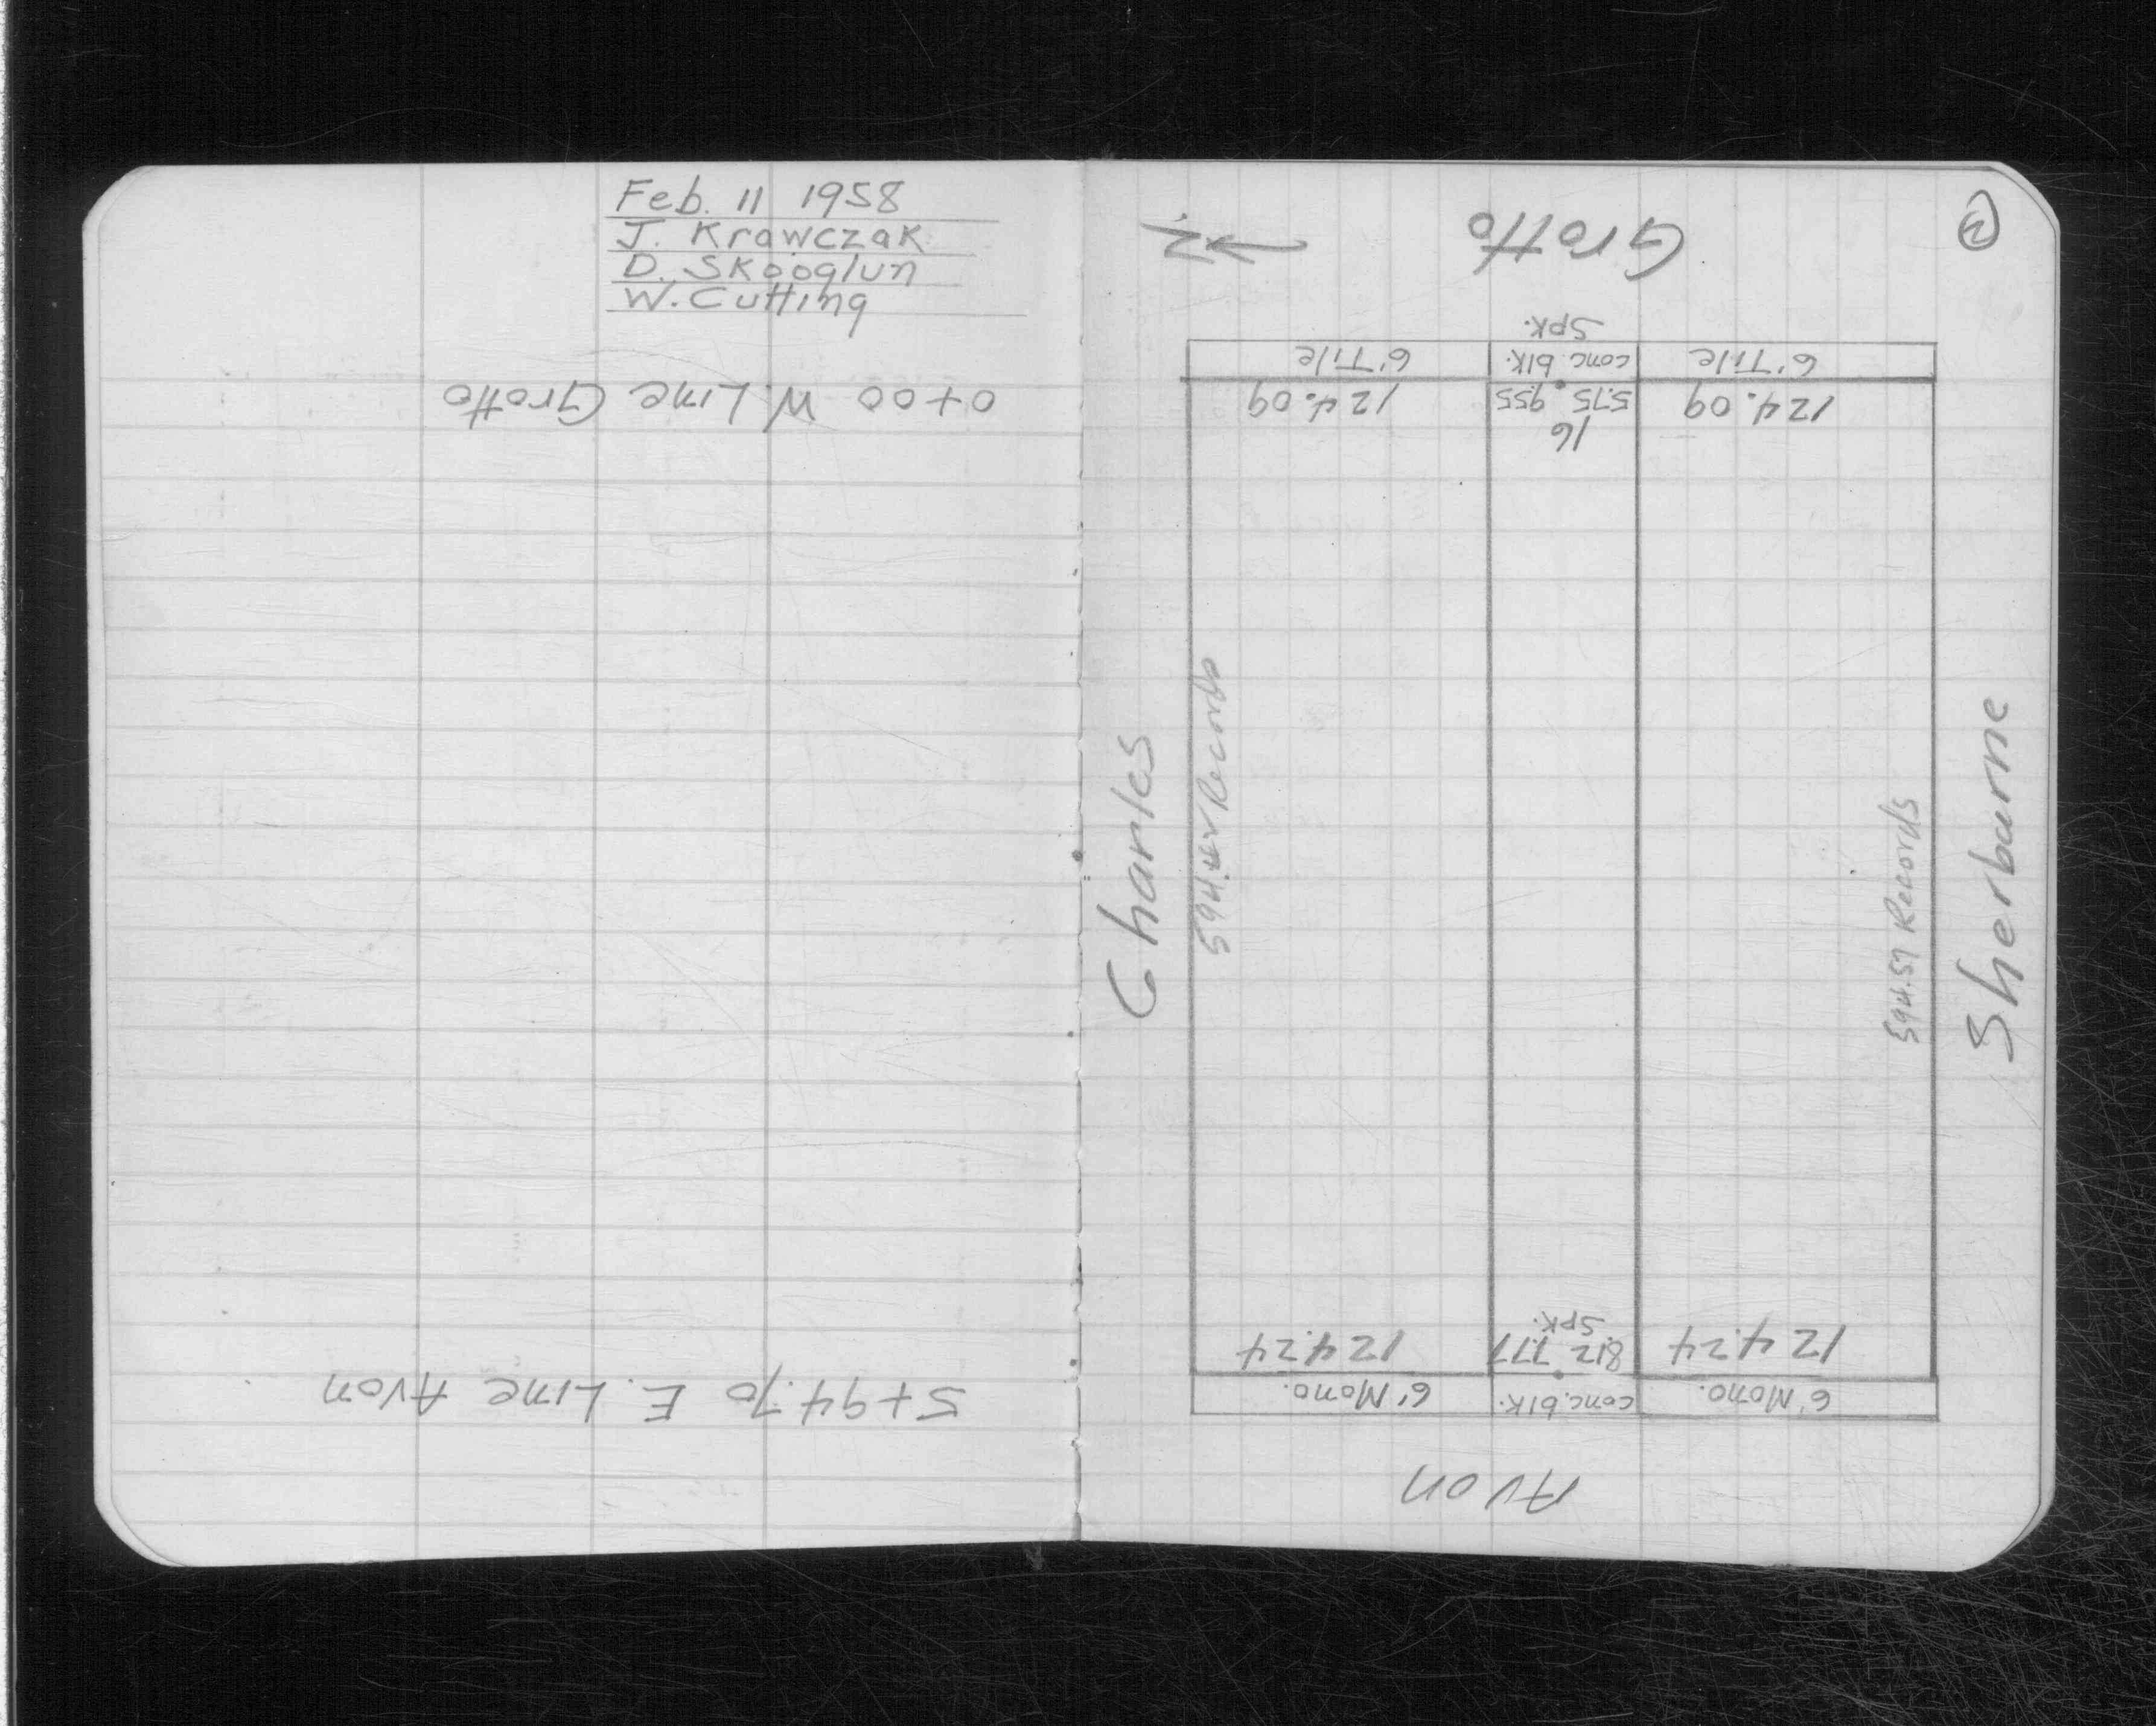 Feb. 11 1958
J. Krawczak
D. Skooglun
W. Cutting
0+00 W. Line Grotto
5+94.70 E. Line Avon
3
N.
Grotto
Spk.
6' Tile conc. blk. 6' Tile
124.09 5.75 9.55 124.09
16
Charles
Records
594.57 Records
Sherburne
Spk.
124.24 8.12 7.77 124.24
6' Mono. conc. blk. 6' Mono.
Avon